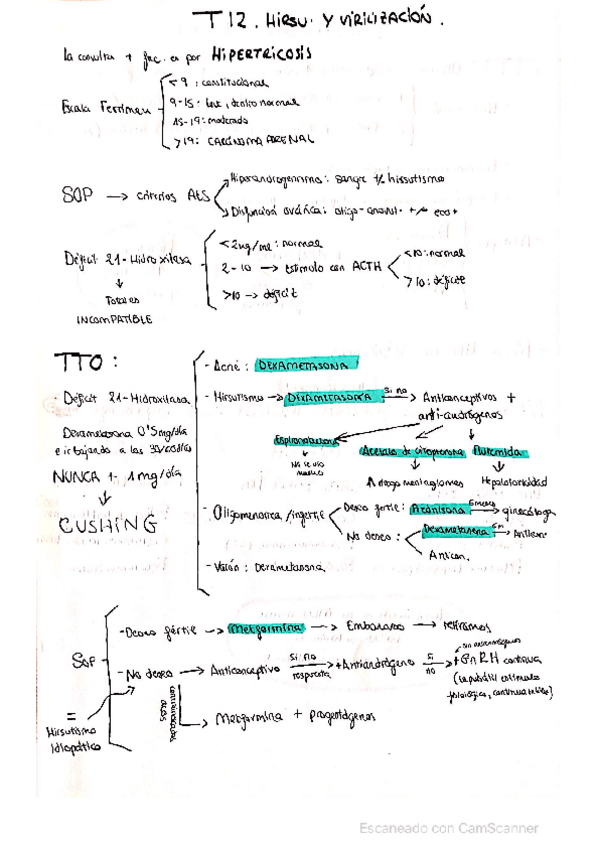 T 12. HIRSU. Y VIRILIZACIÓN.
la consulta + frec. es por HIPERTRICOSIS
Escala Ferriman
<9 : constitucional
9-15: leve, dentro normal
15-19: moderado
>19: CARCINOMA ADRENAL
SOP → criterios AES
Hiperandrogenismo: sangre +/- hirsutismo
Disfunción ovárica: oligo-anovul. +/- eco +
Déficit 21-Hidroxilasa
↓
Totales
INCOMPATIBLE
<2ng/ml: normal
2-10 → estímulo con ACTH
<10: normal
>10: déficit
>10 → déficit
TTO:
- Déficit 21-Hidroxilasa
Dexametasona 0'5mg/día
e ir bajando a los 30/60 días
NUNCA 1mg/día
↓
CUSHING
- Acné: DEXAMETASONA
- Hirsutismo → DEXAMETASONA si no → Anticonceptivos +
anti-andrógenos
Espironolactona
↓
No se usa
Acetato de ciproterona
↓
meningiomas
Flutamida
↓
Hepatotoxicidad
- Oligomenorrea/infertil
Deseo fertil: Prednisona 6 meses → ginecólogo
No deseo: Dexametasona
Antican.
- Varón: Dexametasona
SOP
- Deseo fértil → Metformina → Embarazo → retiramos
- No deseo → Anticonceptivo si no respuesta → + Antiandrógeno si no → + GnRH continua
(la pulsátil estimula
fisiológica, continua inhibe)
contraindicados
ACOS
→ Metformina + progestágenos
=
Hirsutismo
idiopático
Escaneado con CamScanner